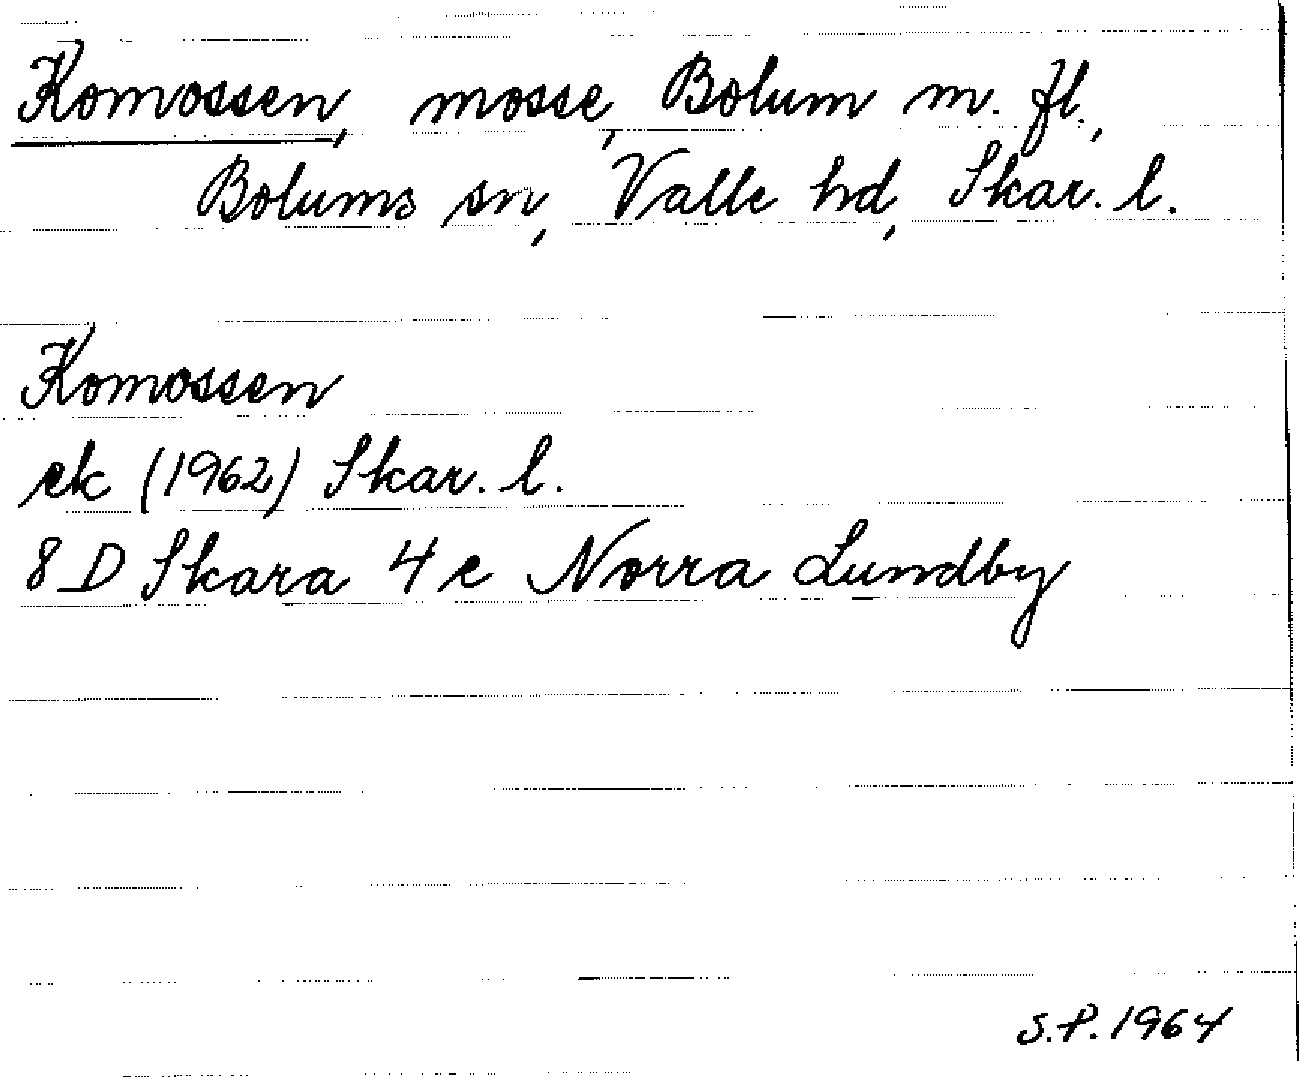 Komossen, mosse, Bolum m. fl.,
Bolums sn, Valle hd, Skar. l.
Komossen
ek (1962) Skar. l.
8 D Skara 4 e Norra Lundby
S.P. 1964